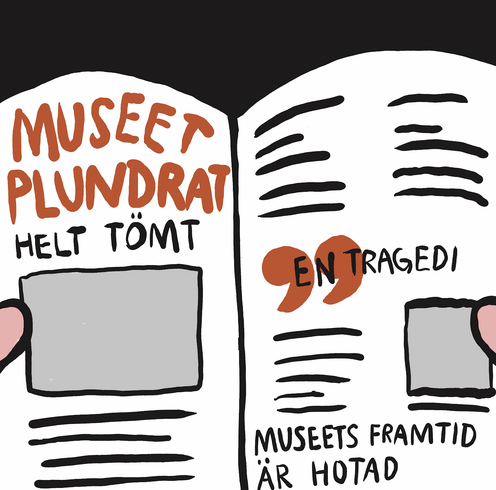 MUSEET
PLUNDRAT
HELT TÖMT
EN TRAGEDI
MUSEETS FRAMTID
ÄR HOTAD